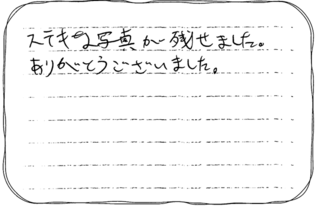 ステキな写真が残せました。
ありがとうございました。